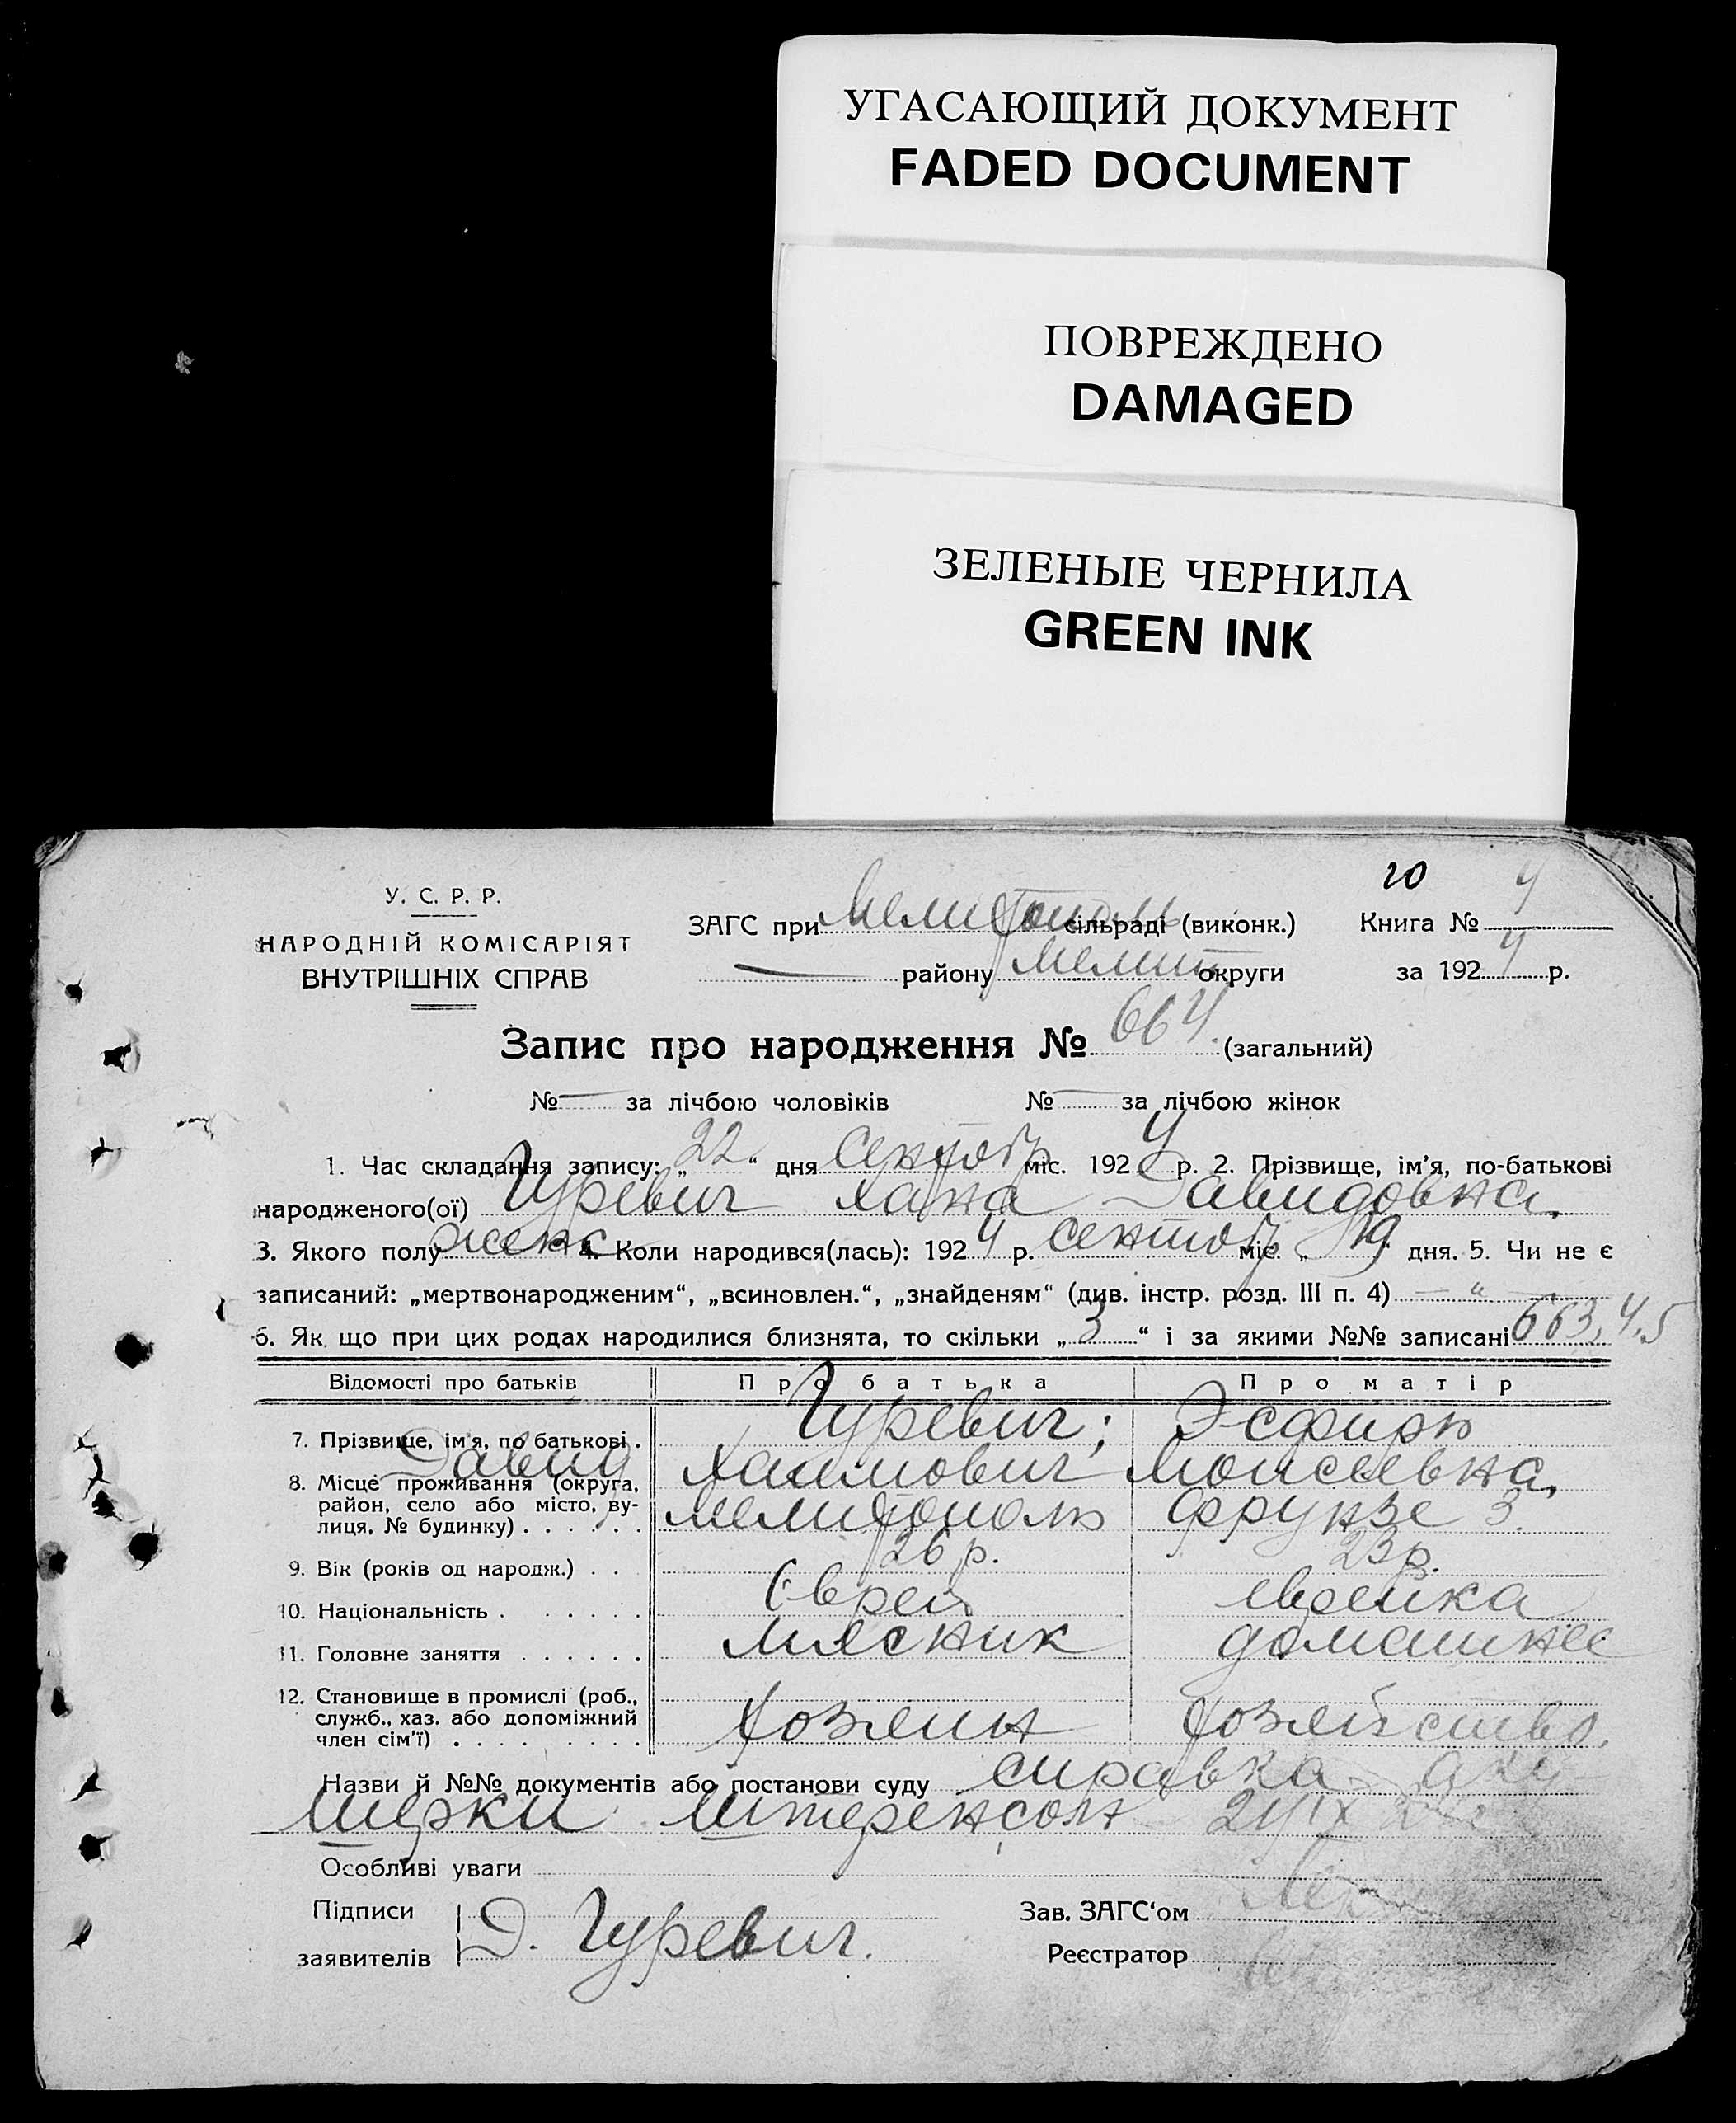 УГАСАЮЩИЙ ДОКУМЕНТ
FADED DOCUMENT
ПОВРЕЖДЕНО
DAMAGED
ЗЕЛЕНЫЕ ЧЕРНИЛА
GREEN INK
У. С. Р. Р.
НАРОДНІЙ КОМІСАРІЯТ
ВНУТРІШНІХ СПРАВ
20
ЗАГС при Мелитополь сільраді (виконк.) Книга № 4
— району Мелит округи за 1924 р.
Запис про народження № 664. (загальний)
№ — за лічбою чоловіків № — за лічбою жінок
1. Час складання запису: „22.“ дня Сентябр міс. 1924 р. 2. Прізвище, ім'я, по-батькові
народженого(ої) Гуревич Хана Давидовна.
3. Якого полу женс 4. Коли народився(лась): 1924 р. сентябр міс. „19“ дня. 5. Чи не є
записаний: „мертвонародженим“, „всиновлен.“, „знайденям“ (див. інстр. розд. III п. 4) — “ —
6. Як що при цих родах народилися близнята, то скільки „3“ і за якими №№ записані 663,4.5
Відомості про батьків Про батька Про матір
7. Прізвище, ім'я, по батькові . Гуревич; Эсфирь
Давид Хаимович Моисеевна,
8. Місце проживання (округа, район, село або місто, вулиця, № будинку) . . . . . . Мелитополь Фрунзе 3.
9. Вік (років од народж.) . . 26 р. 23 р.
10. Національність . . . . . . Єврей еврейка
11. Головне заняття . . . . . . мясник домашнее
12. Становище в промислі (роб., служб., хаз. або допоміжний член сім'ї) . . . . . . . . . Хозяин хозяйство.
Назви й №№ документів або постанови суду справка аку-
шерки Штеренсон
Особливі уваги
Підписи
заявителів Д. Гуревич.
Зав. ЗАГС'ом
Реєстратор